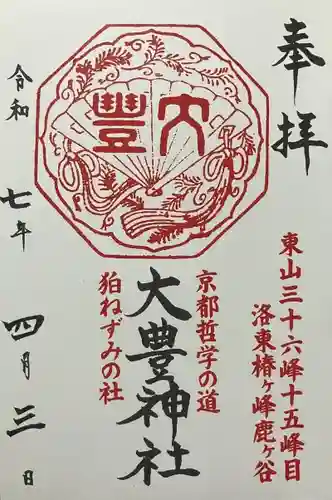 奉拝
東山三十六峰十五峰目
洛東椿ヶ峰鹿ヶ谷
大豊
京都哲学の道
大豊神社
狛ねずみの社
令和七年四月三日